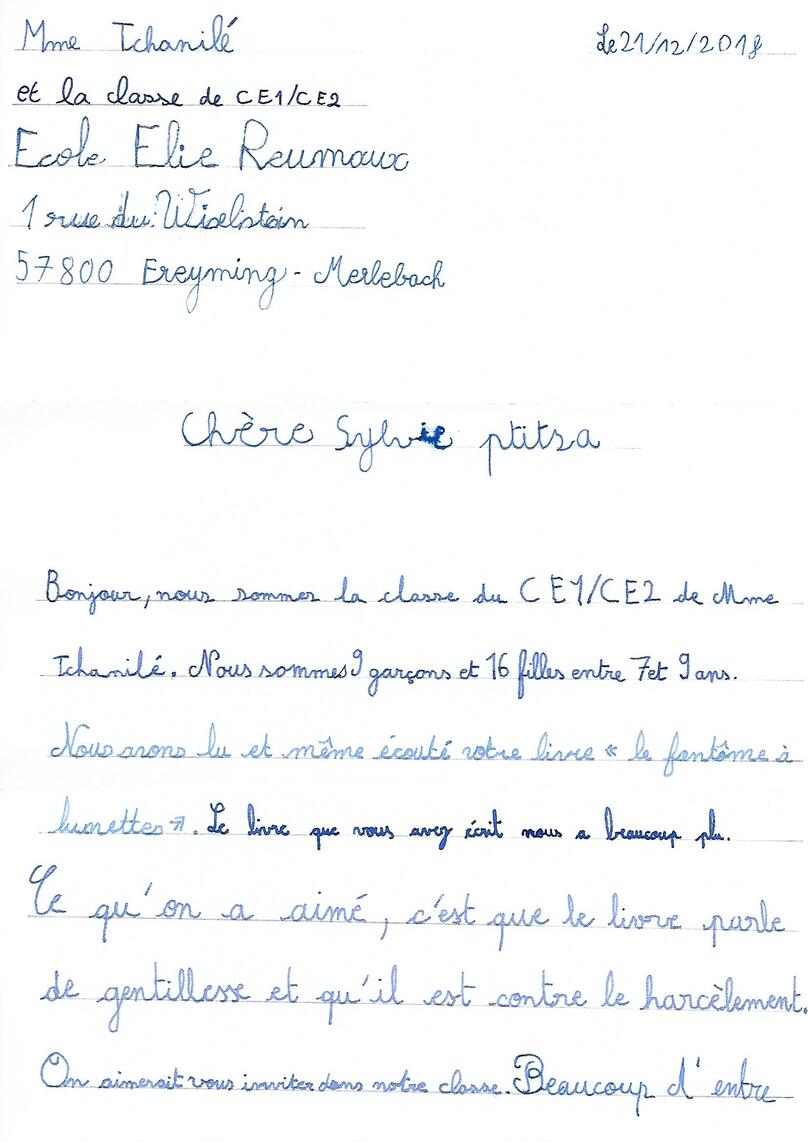 Mme Tchanilé
Le 21/12/2018
et la classe de CE1/CE2
Ecole Elie Reumaux
1 rue du Wiselstein
57800 Freyming - Merlebach
Chère Sylvie ptitsa
Bonjour, nous sommes la classe du CE1/CE2 de Mme
Tchanilé. Nous sommes 9 garçons et 16 filles entre 7 et 9 ans.
Nous avons lu et même écouté votre livre « le fantôme à
lunettes ». Le livre que vous avez écrit nous a beaucoup plu.
Ce qu'on a aimé, c'est que le livre parle
de gentillesse et qu'il est contre le harcèlement.
On aimerait vous inviter dans notre classe. Beaucoup d'entre